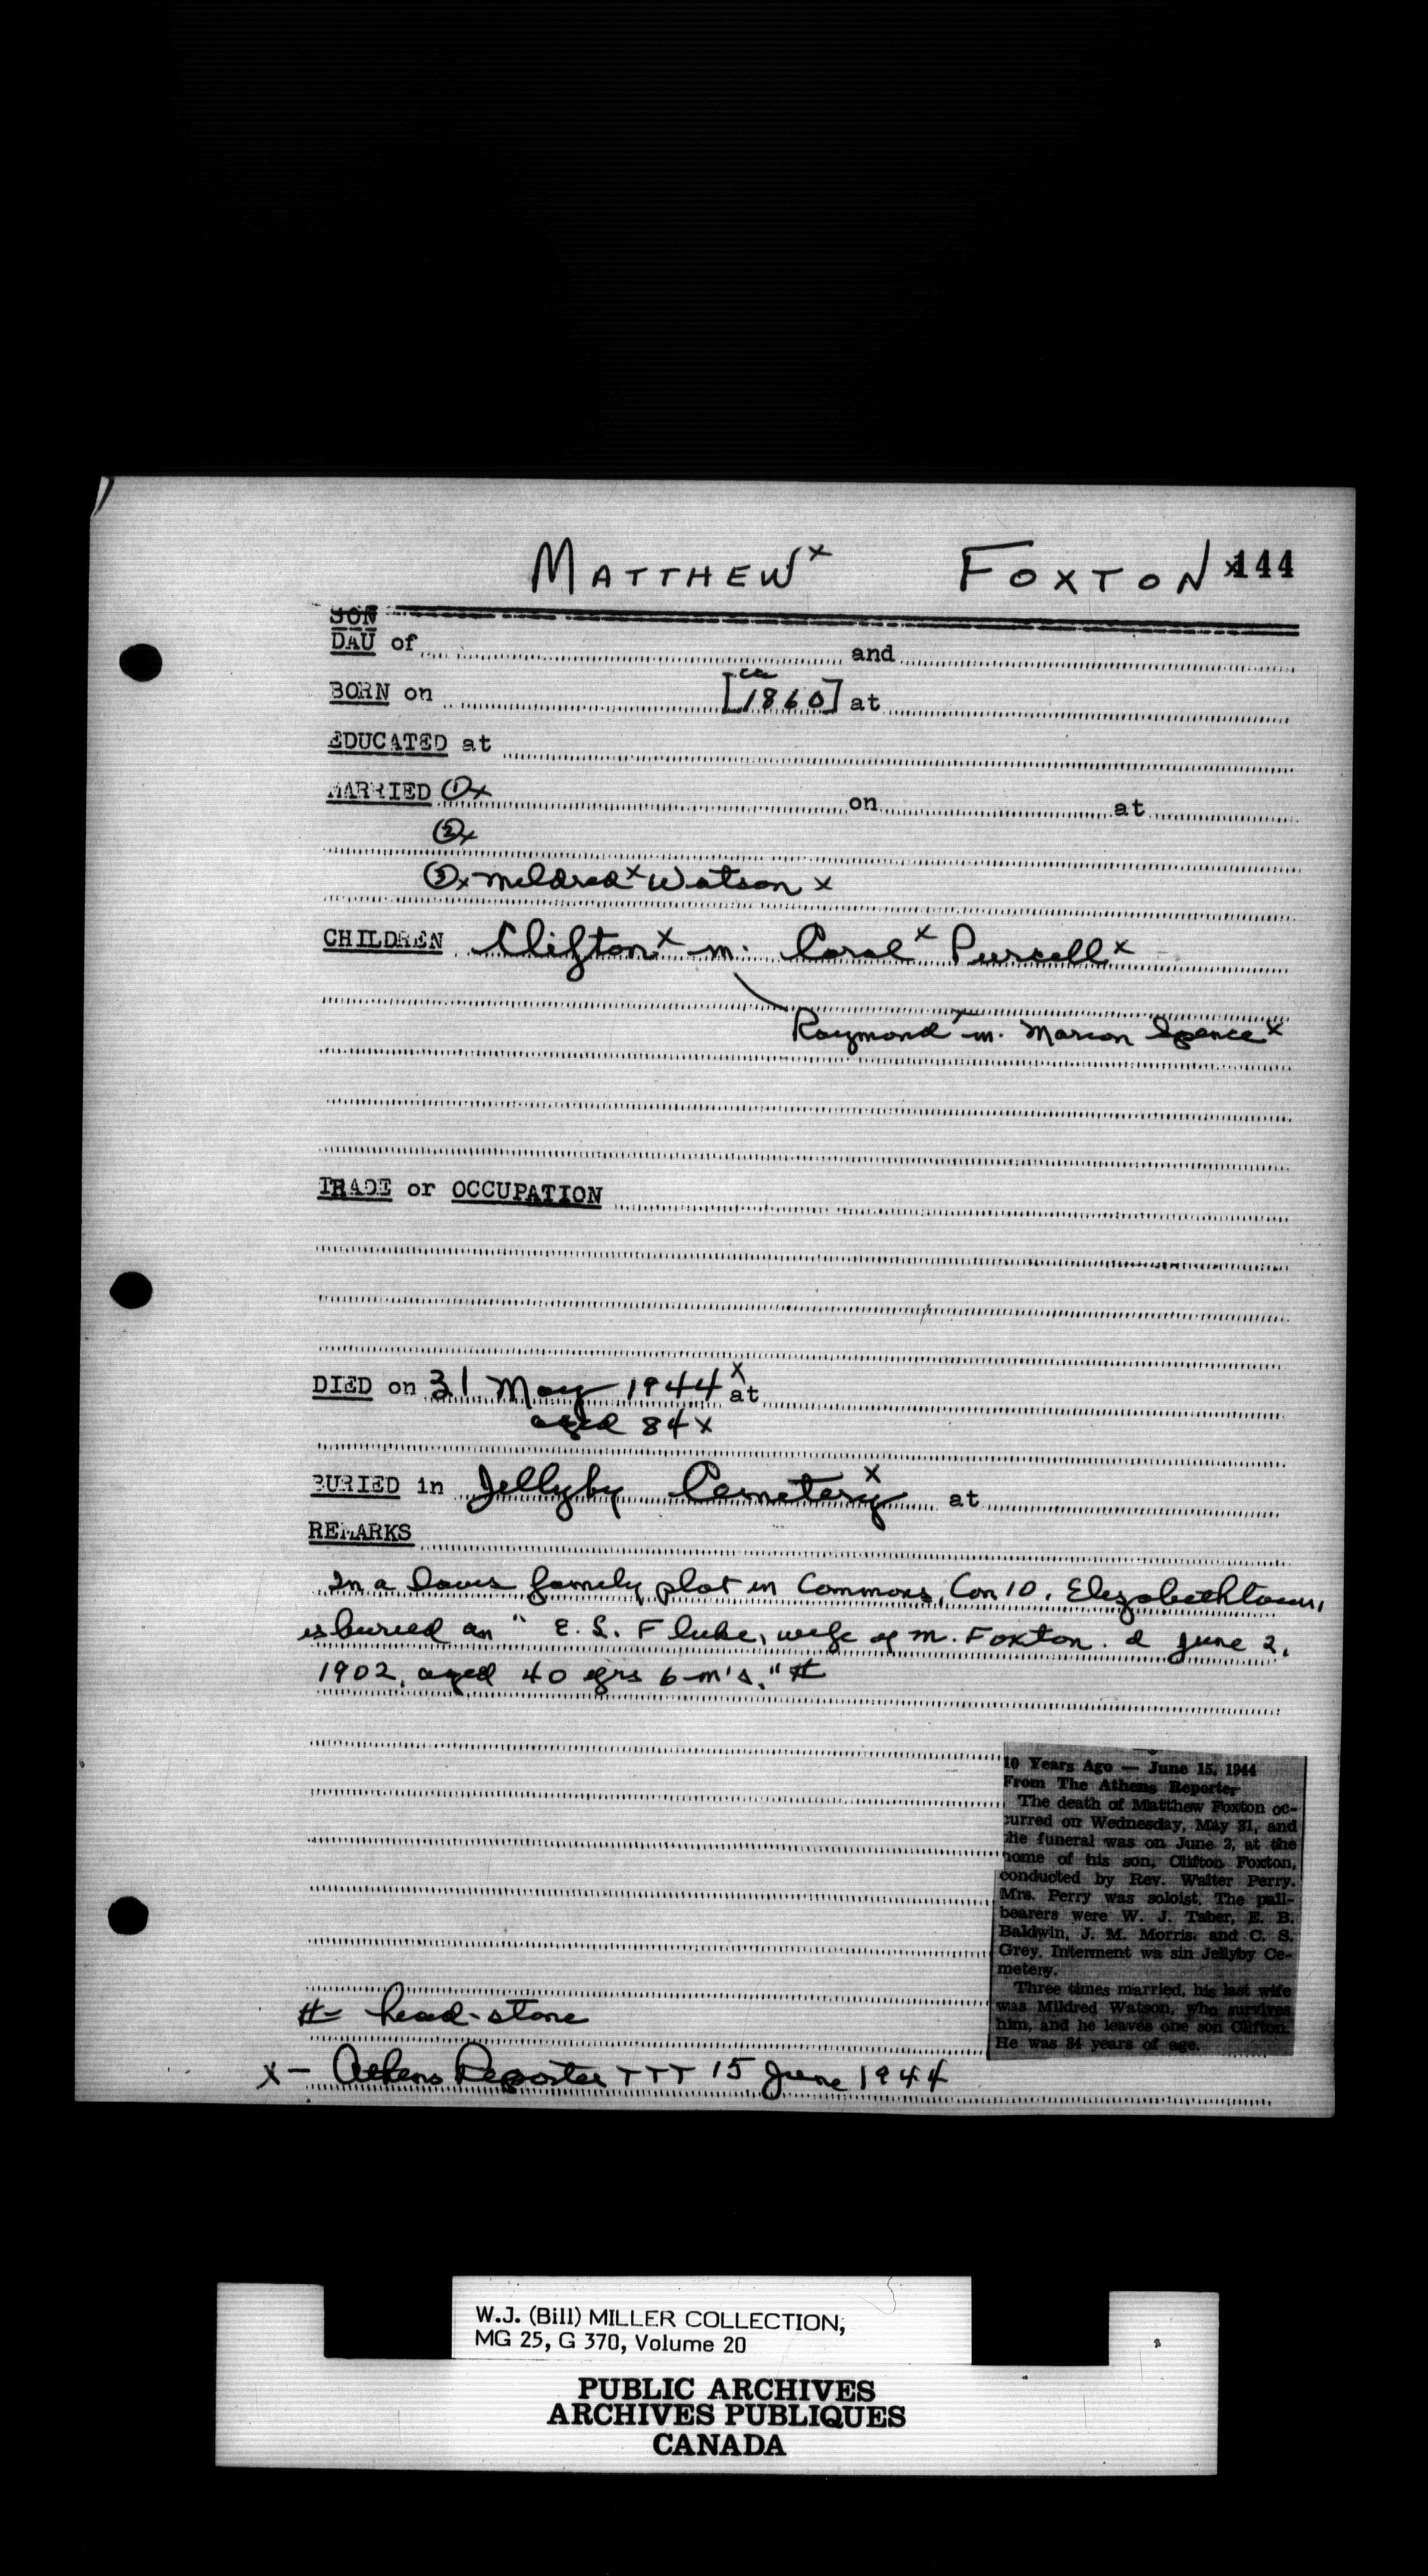 MATTHEWx FOXTON x144
SON
DAU of and
BORN on [ca 1860] at
EDUCATED at
MARRIED ①x on at
②x
③x Mildredx Watson x
CHILDREN Cliftonx m. Carolx Purcellx
Raymondx m. Marion Spencex
TRADE or OCCUPATION
DIED on 31 May 1944x at
aged 84x
BURIED in Jellyby Cemeteryx at
REMARKS
In a Davis family plot in Commons, Con 10, Elizabethtown,
is buried an "E. S. Fluke, wife of M. Foxton. d June 2,
1902, aged 40 yrs 6 m's." #
10 Years Ago — June 15, 1944
From The Athens Reporter
The death of Matthew Foxton oc-
curred on Wednesday, May 31, and
the funeral was on June 2, at the
home of his son, Clifton Foxton,
conducted by Rev. Walter Perry.
Mrs. Perry was soloist. The pall-
bearers were W. J. Taber, E. B.
Baldwin, J. M. Morris, and C. S.
Grey. Interment wa sin Jellyby Ce-
metery.
Three times married, his last wife
was Mildred Watson, who survives
him, and he leaves one son Clifton.
He was 84 years of age.
#- head-stone
x- Athens Reporter TTT 15 June 1944
W.J. (Bill) MILLER COLLECTION,
MG 25, G 370, Volume 20
PUBLIC ARCHIVES
ARCHIVES PUBLIQUES
CANADA